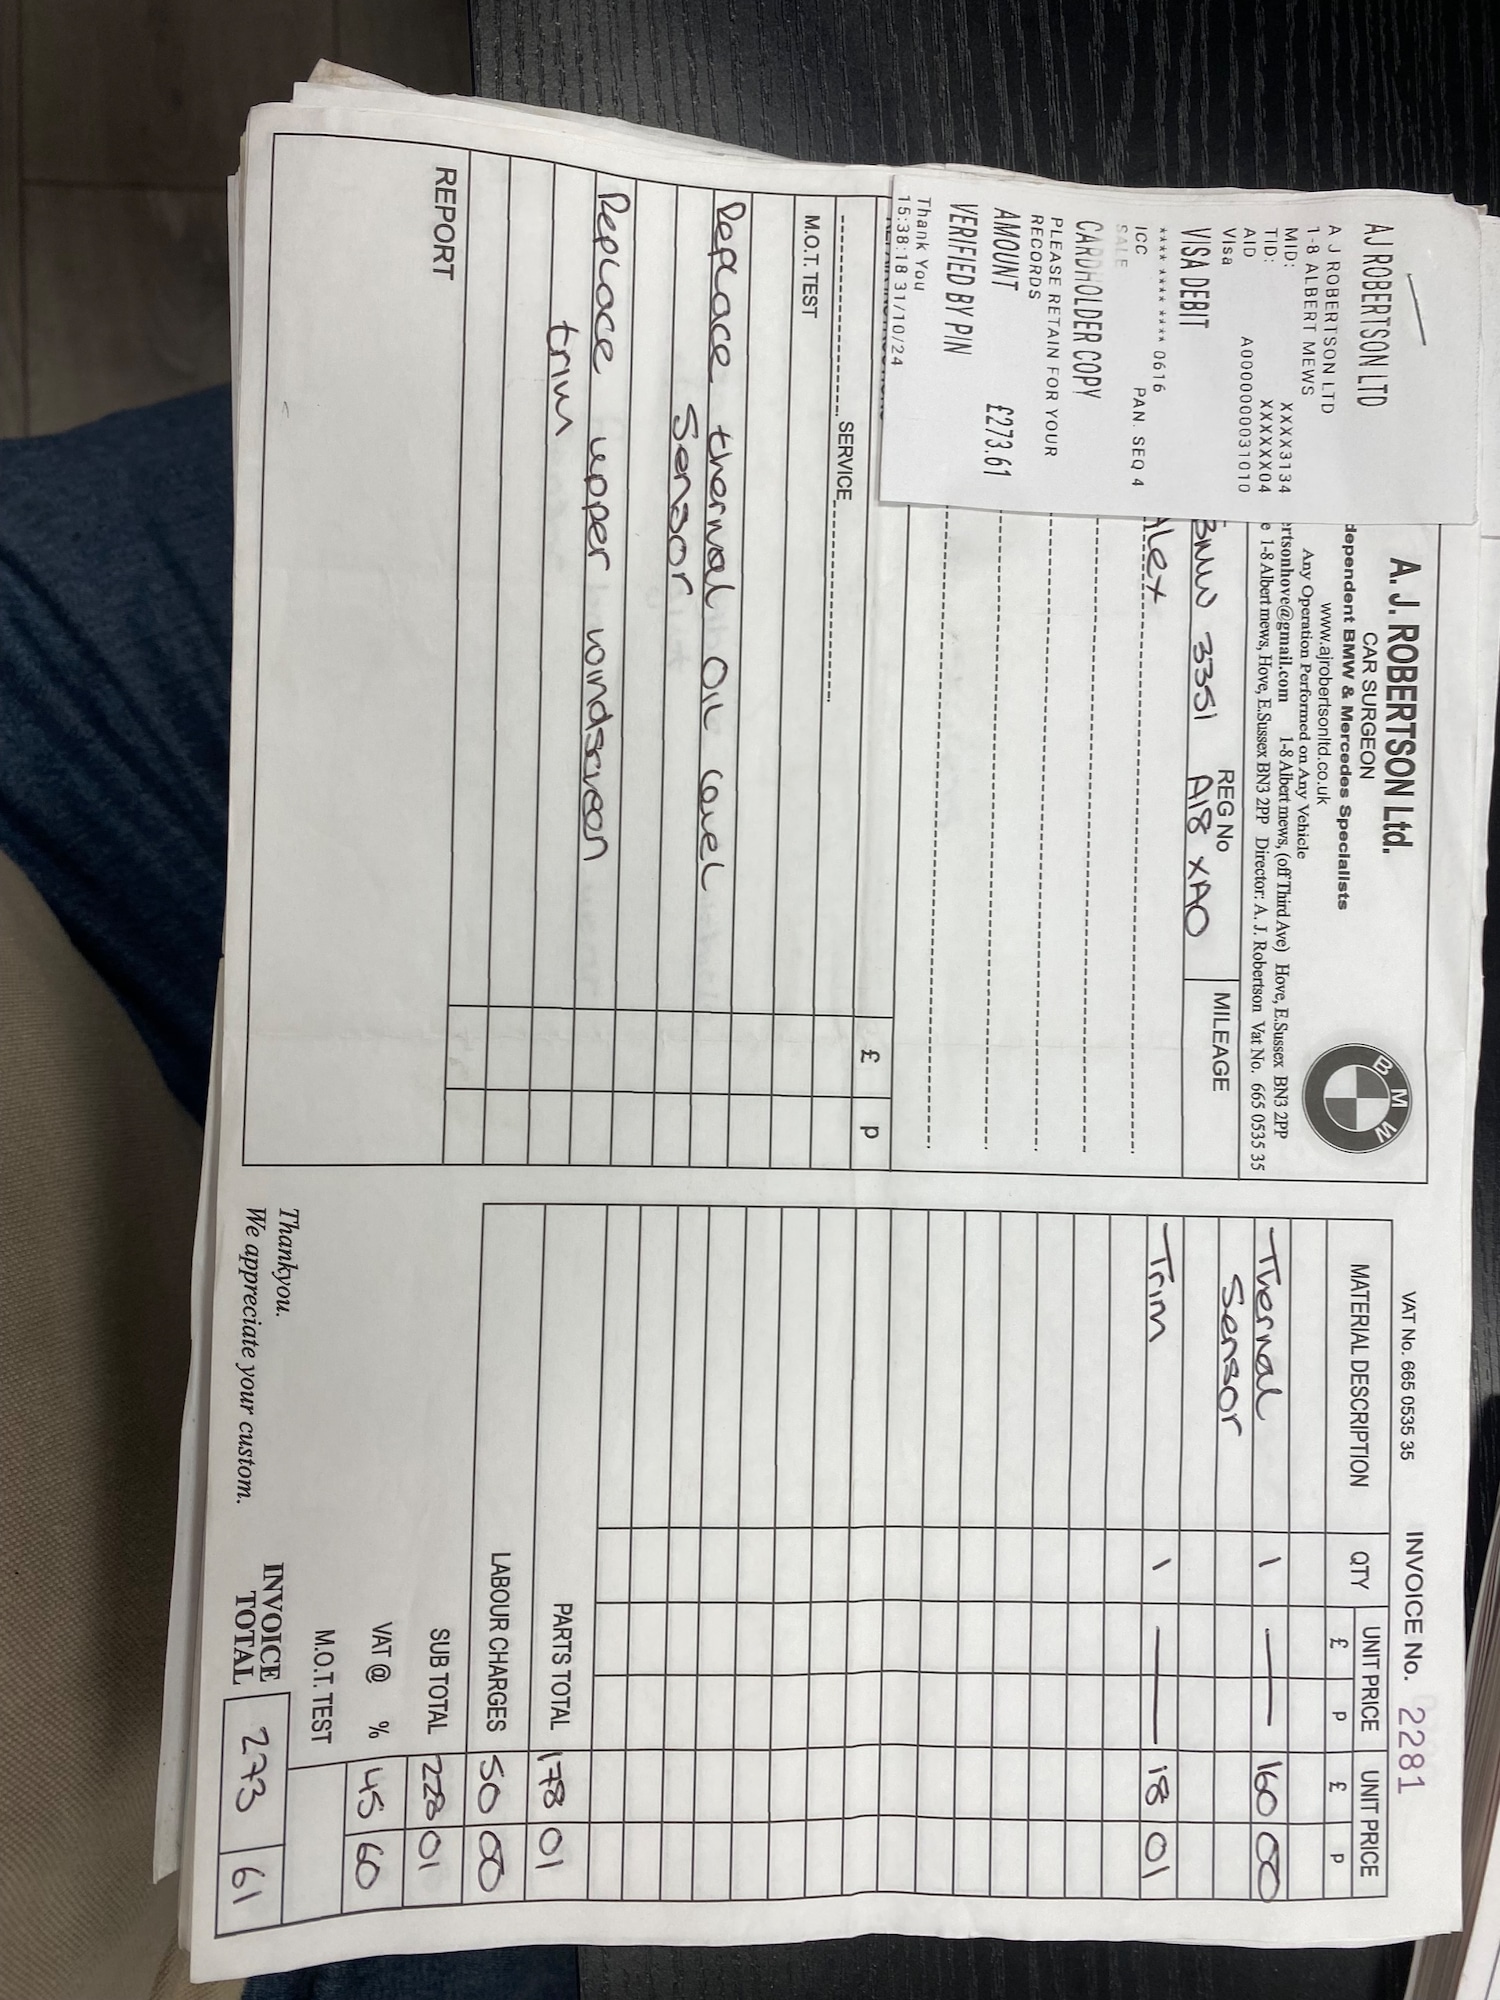 AJ ROBERTSON LTD
A J ROBERTSON LTD
1-8 ALBERT MEWS
MID: XXXX3134
TID: XXXXXX04
AID A0000000031010
Visa
VISA DEBIT
**** **** **** 0616
ICC PAN. SEQ 4
SALE
CARDHOLDER COPY
PLEASE RETAIN FOR YOUR
RECORDS
AMOUNT £273.61
VERIFIED BY PIN
Thank You
15:38:18 31/10/24
A. J. ROBERTSON Ltd.
CAR SURGEON
dependent BMW & Mercedes Specialists
www.ajrobertsonltd.co.uk
Any Operation Performed on Any Vehicle
rtsonhove@gmail.com 1-8 Albert mews, (off Third Ave) Hove, E.Sussex BN3 2PP
e 1-8 Albert mews, Hove, E.Sussex BN3 2PP Director: A. J. Robertson Vat No. 665 0535 35
BMW
REG No MILEAGE
BMW 335i A18 XAO
Alex
£ p
SERVICE
M.O.T. TEST
Replace thermal oil level
Sensor
Replace upper windscreen
trim
REPORT
VAT No. 665 0535 35 INVOICE No. 2281
MATERIAL DESCRIPTION QTY UNIT PRICE UNIT PRICE
£ p £ p
Thermal 1 — 160 00
Sensor
Trim 1 — 18 01
PARTS TOTAL 178 01
LABOUR CHARGES 50 00
SUB TOTAL 228 01
VAT @ % 45 60
M.O.T. TEST
Thankyou.
We appreciate your custom.
INVOICE
TOTAL 273 61